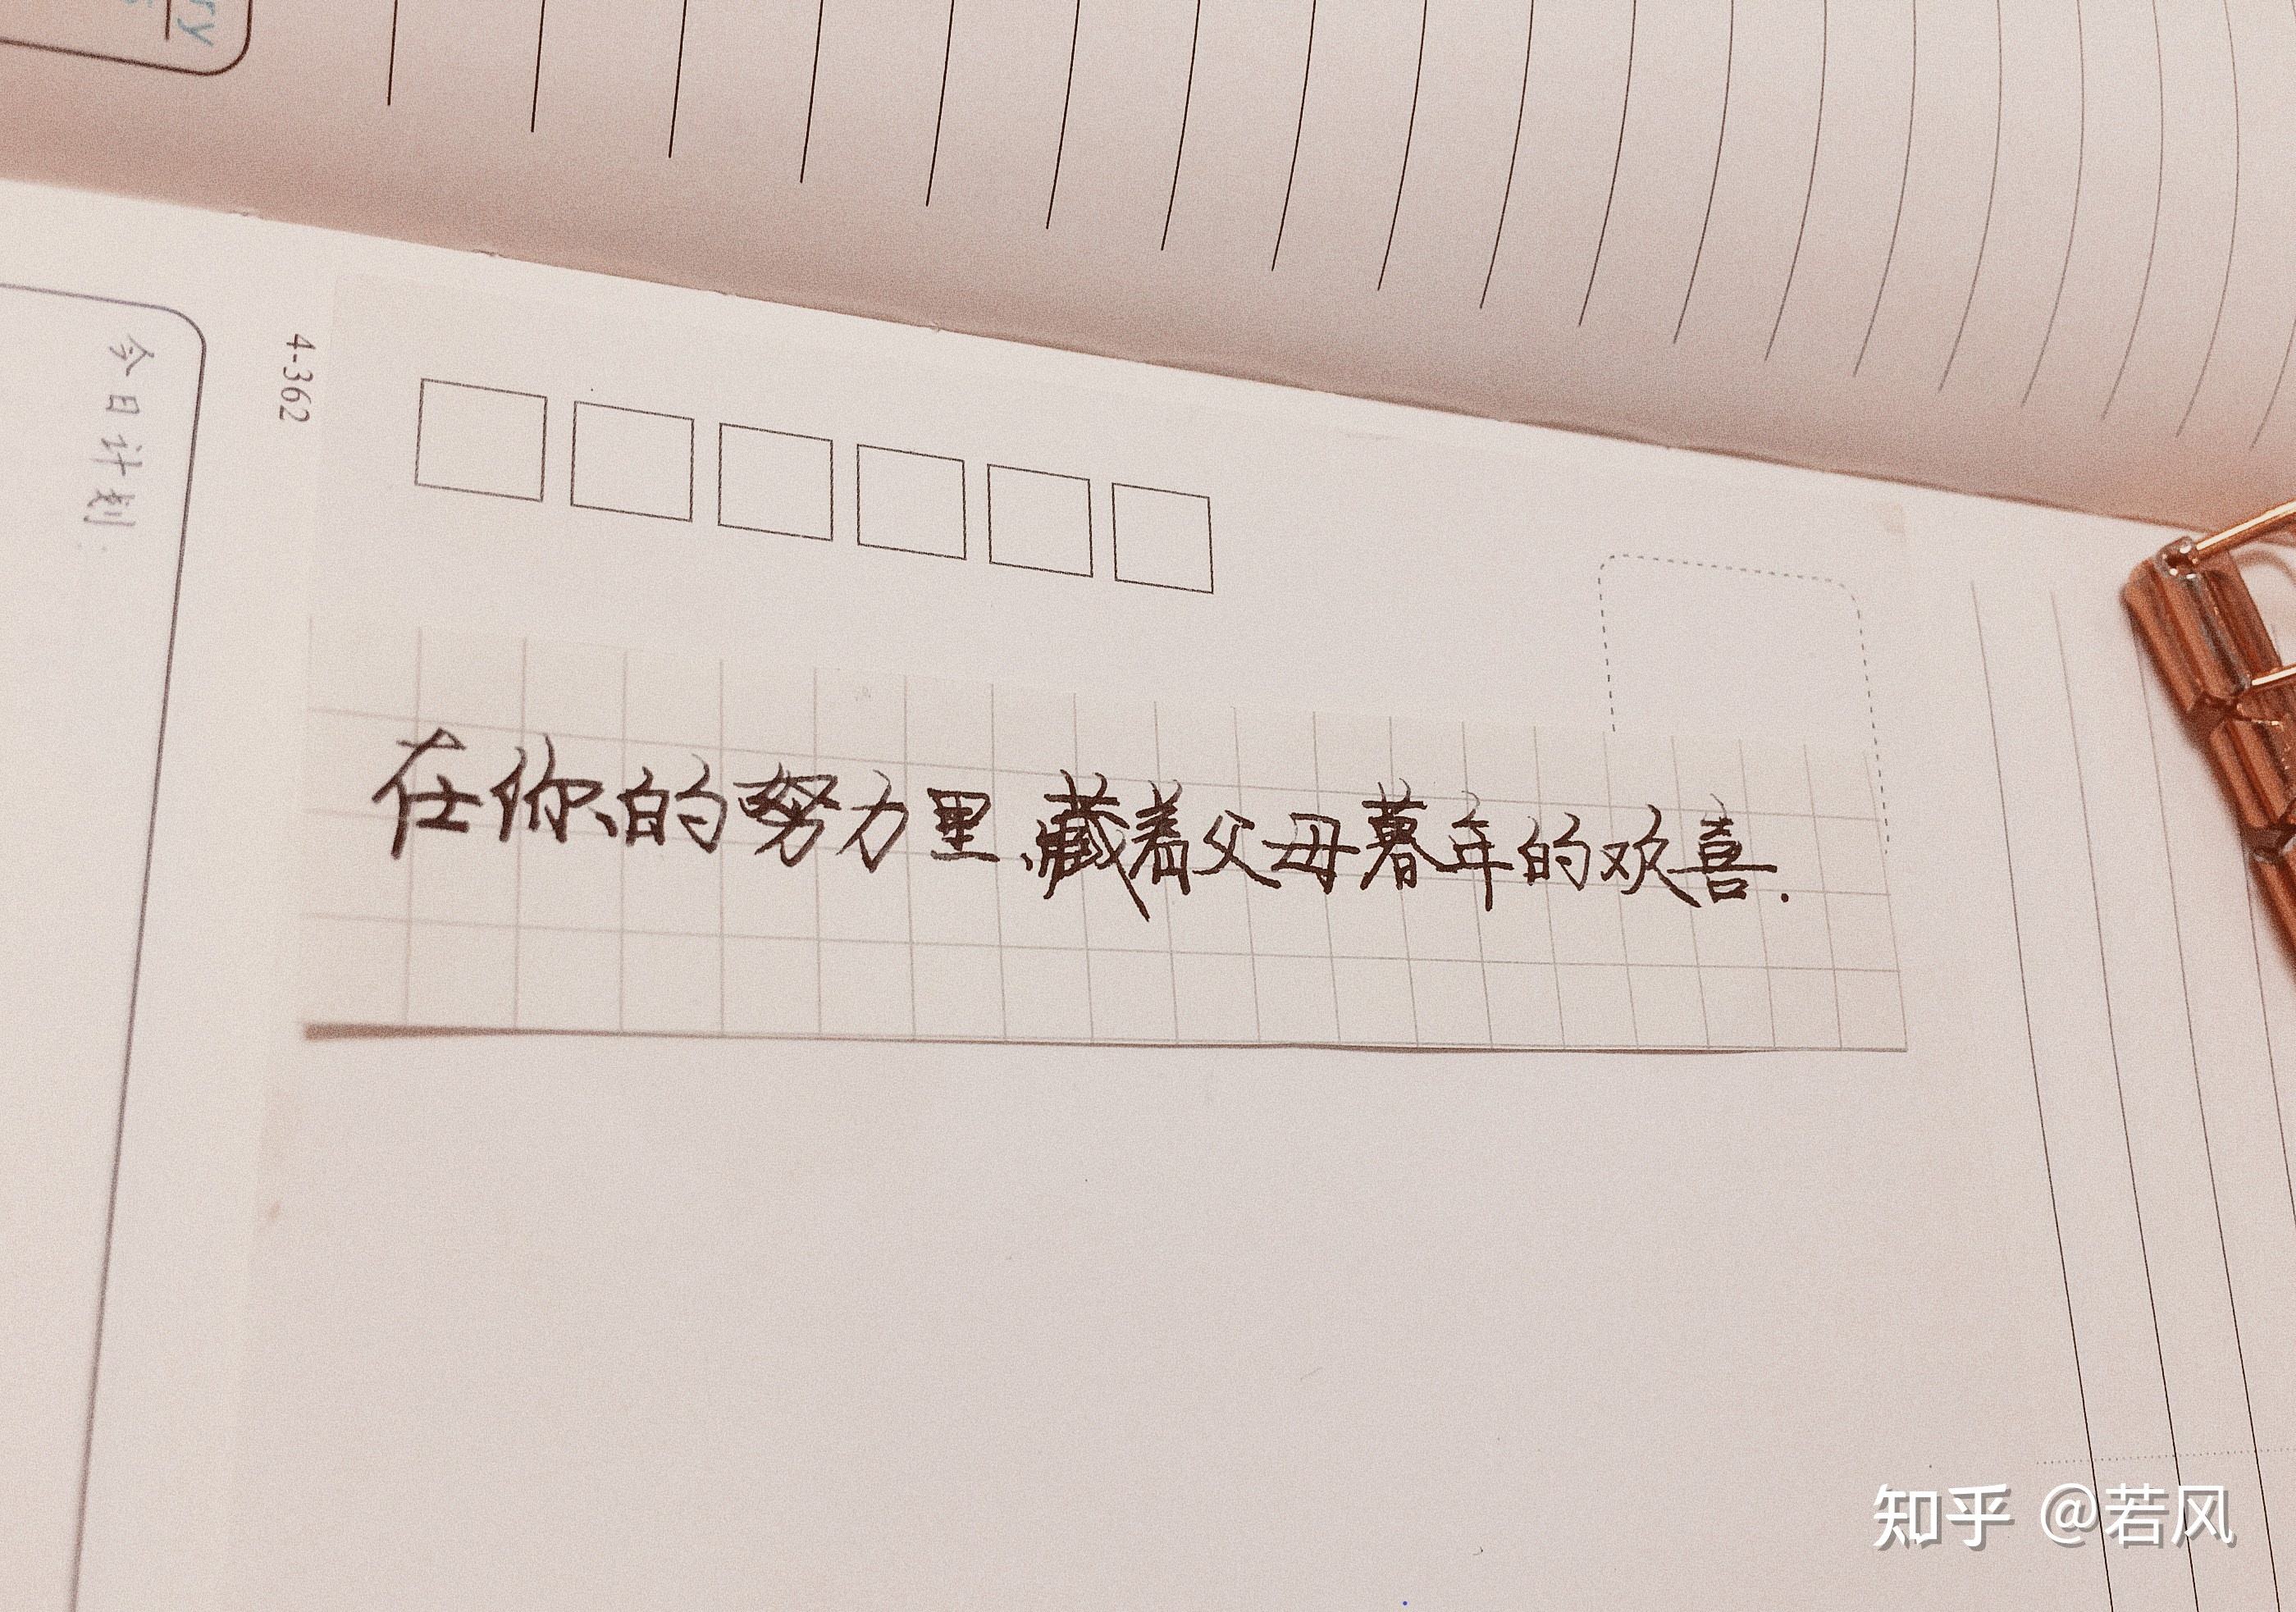 ry
今日计划:
4-362
在你的努力里、藏着父母暮年的欢喜.
知乎 @若风